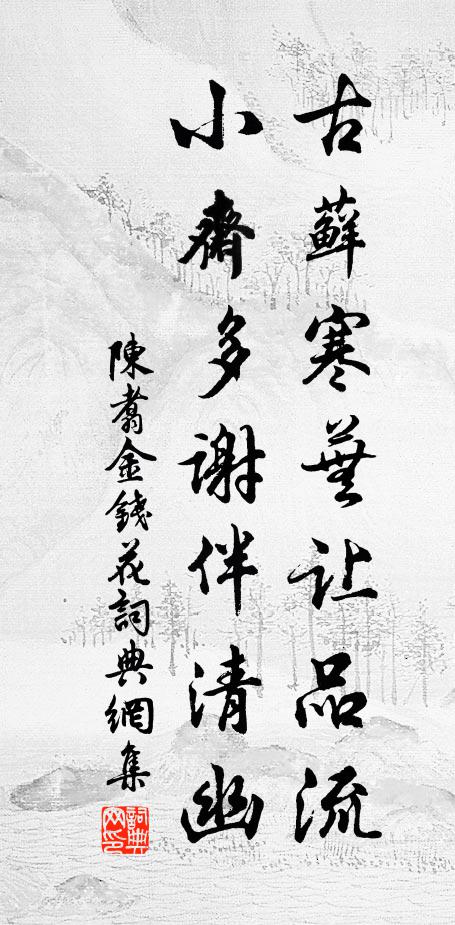 古蘚寒蕪让品流
小齋多謝伴清幽
陳翥金錢花詞典網集
詞典网印